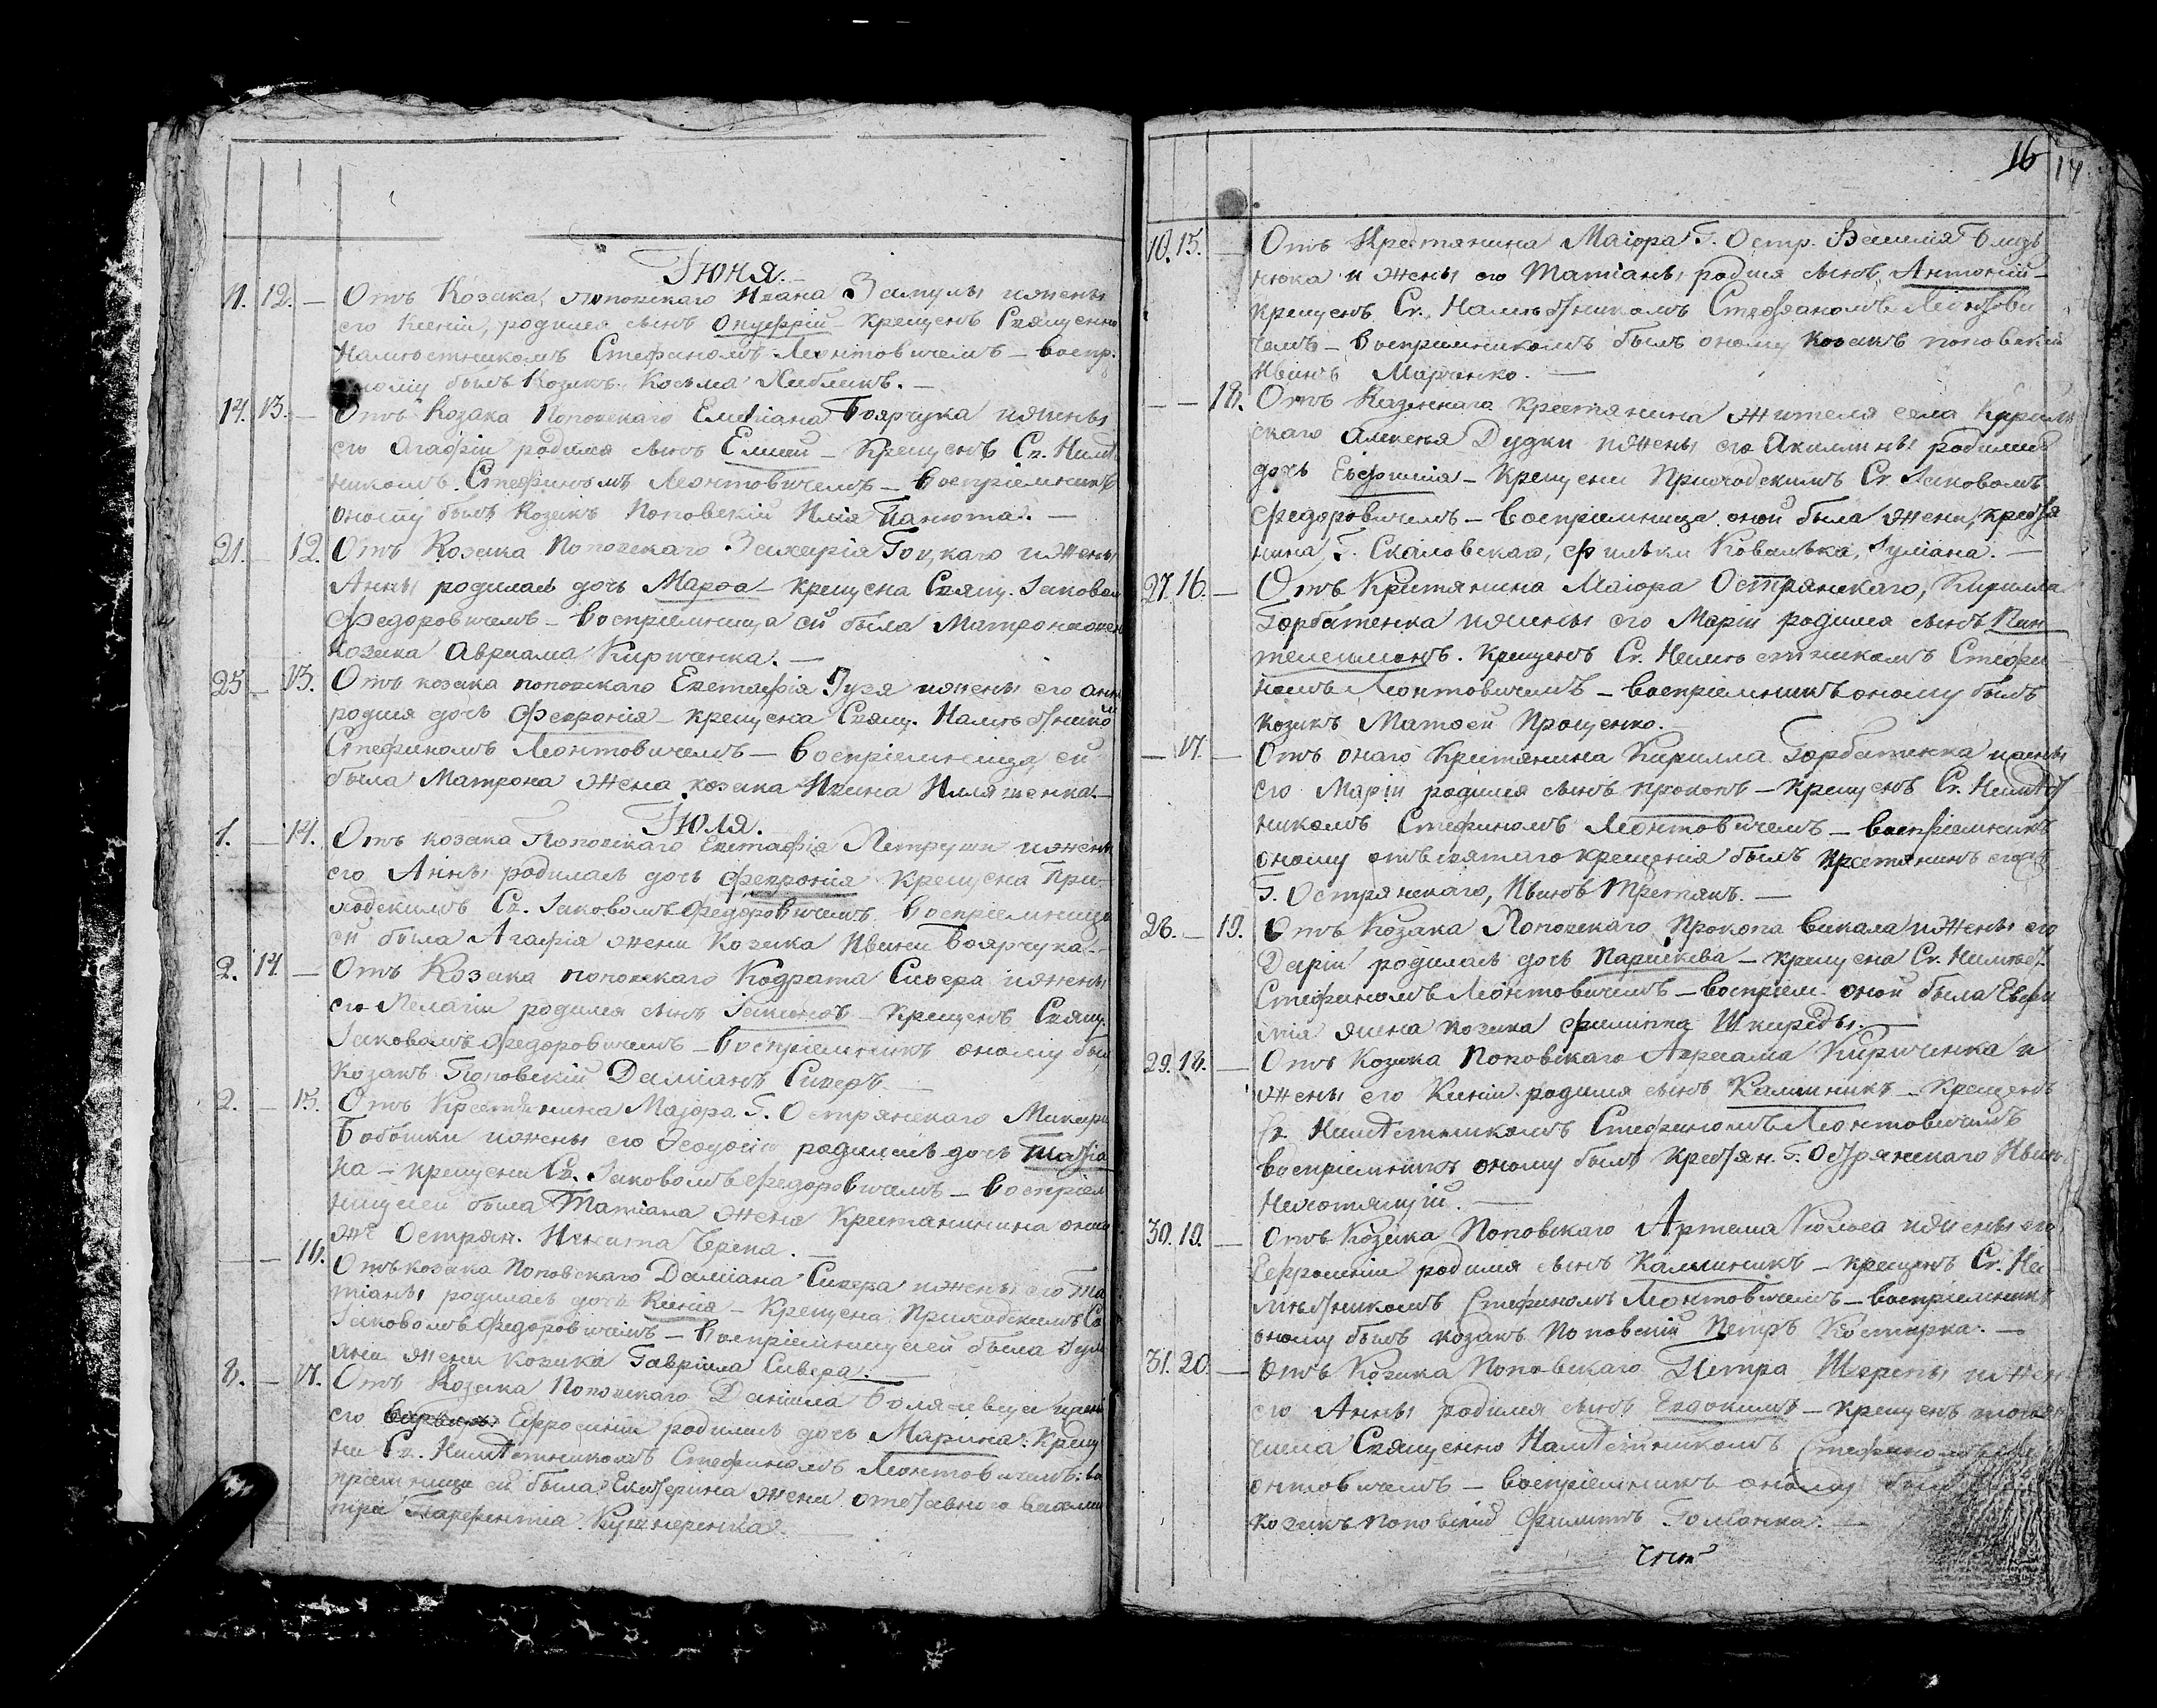 Іюня.
11. 12. — Отъ Козака, Поповскаго Ивана Замулы и жены
его Ксеніи, родился сынъ Онуфрій – крещенъ Священно
Намѣстникомъ Стефаномъ Леонтовичемъ – воспр.
оному былъ Козакъ Косьма Хибликъ. —
14. 13. — Отъ Козака Поповскаго Емеліана Боярчука и жены
его Агафіи родился сынъ Елисей – Крещенъ Св. Намѣст
никомъ Стефаномъ Леонтовичемъ – воспріемникъ
оному былъ Козакъ Поповскій Илія Панюта. —
21. — 12. Отъ Козака Поповскаго Захарія каго и жены
Анны родилась дочь Марѳа – крещена Свящ. Іаковом
Федоровичемъ – воспріемница ей была Матрона жен
Козака Авраама Кирченка. —
25 — 13. Отъ козака поповскаго Евстафія Гузя и жены его Анны
родися дочь Февронія – крещена Свящ. Намѣстнико
Стефаномъ Леонтовичемъ – воспріемница ей
была Матрона жена козака Ивана Илляшенка. —
Іюля.
1. — 14. Отъ козака Поповскаго Евстафія Петруши и жены
его Анны родилась дочь Февронія Крещена При-
ходскимъ Св. Іаковомъ Федоровичемъ воспріемница
ей была Агафія жена Козака Ивана Боярчука. —
2. 14. — Отъ Козака поповскаго Кодрата Сивера и жены
его Пелагіи родился сынъ Іакимъ – Крещенъ Свящ.
Іаковомъ Федоровичемъ – воспріемникъ оному был
Козакъ Поповскій Даміанъ Сиверъ. —
2. — 15. Отъ Крестянина Маіора Г. Острянскаго Макара
Бабошки и жены его Ѳеодосіи родилась дочь Татіа
на – крещена Св. Іаковомъ Федоровичемъ – воспріем
ницей была Татіана жена Крестянинина онаго
жъ Острян. Никита Черепа. —
— — 16. Отъ козака Поповскаго Даміана Сивера и жены его Та
тіаны родилась дочь Ксенія – Крещена Приходскимъ Св
Іаковомъ Федоровичемъ – воспріемницей была Іулі
яна жена козака Гавріила Сивера. —
8. — 17. Отъ Козака Поповскаго Даніила и жены
его Ефросиніи родилась дочь Марина: Креще
на Св. Намѣстникомъ Стефаномъ Леонтовичемъ: во
пріемница ей была Екатерина жена отставного
Парфентія Кушнеренка.
16 17
10. 15. — Отъ Крестянина Маіора Г. Остр. Василія Близ
нюка и жены его Татіаны родися сынъ, Антоній –
крещенъ Св. Намѣстникомъ Стефаномъ Леонтови
чемъ – воспріемникомъ былъ оному козакъ поповскій
Иванъ Марченко. —
— — 18. Отъ Казеннаго крестянина жителя села
скаго Алексѣя Дудки и жены его Акилины родилась
дочь Евфимія – Крещена Приходскимъ Св. Іаковомъ
Федоровичемъ – воспріемница оной была жена, крестя
нина, Г. Скаловскаго, Ковалька, Іуліана. —
27. 16. — Отъ Крестянина Маіора Острянскаго, Кирилла
Горбатенка и жены его Маріи родися сынъ Пан
телеимонъ. Крещенъ Св. Намѣстникомъ Стефа
номъ Леонтовичемъ – воспріемникъ оному былъ
козакъ Матѳей Прощенко. —
— 17. — Отъ онаго Крестянина Кирилла Горбатенка и жены
его Маріи родился сынъ Прокопъ – Крещенъ Св. Намѣст
никомъ Стефаномъ Леонтовичемъ – воспріемникъ
оному отъ святаго крещенія былъ крестянинъ
Г. Острянскаго, Иванъ Третякъ. —
28. — 19. Отъ Козака Поповскаго Прокопа Викала и жены его
Даріи родилась дочь Парискева – крещена Св. Намѣст.
Стефаномъ Леонтовичемъ – воспріем. оной была Евфи
мія жена козака Филиппа Шкиреды. —
29. 18. — Отъ Козака Поповскаго Авраама Кирченка и
жены его Ксеніи родился сынъ Калиникъ – Крещенъ
Св. Намѣстникомъ Стефаномъ Леонтовичемъ
воспріемникъ оному былъ Крестян. Г. Острянскаго Иван
Нехотящій. —
30. 19. — Отъ Козака Поповскаго Артема Кольса и жены его
Ефросиніи родился сынъ Калиникъ – крещенъ Св. На
мѣстникомъ Стефаномъ Леонтовичемъ – воспріемникъ
оному былъ козакъ Поповскій Петръ Костирка. —
31. 20. — Отъ Козака Поповскаго Петра Шерепы и жен
его Анны родился сынъ Евдокимъ – крещенъ
числа Священно Намѣстникомъ Стефаномъ Ле
онтовичемъ – воспріемникъ оному былъ
козакъ поповскій Филиппъ Гоманка. —